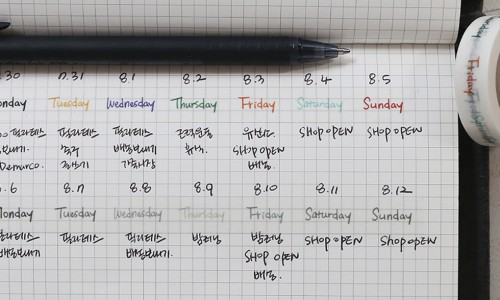 .30 7.31 8.1 8.2 8.3 8.4 8.5
onday Tuesday Wednesday Thursday Friday Saturday Sunday
필라테스 필라테스 필라테스 SHOP OPEN SHOP OPEN
배송보내기 휴식. SHOP OPEN
Demarco. 배송.
.6 8.7 8.8 8.9 8.10 8.11 8.12
Monday Tuesday Wednesday Thursday Friday Saturday Sunday
필라테스 필라테스 필라테스 밤러닝 밤러닝 SHOP OPEN SHOP OPEN
배송보내기 배송보내기. SHOP OPEN
배송.
Friday